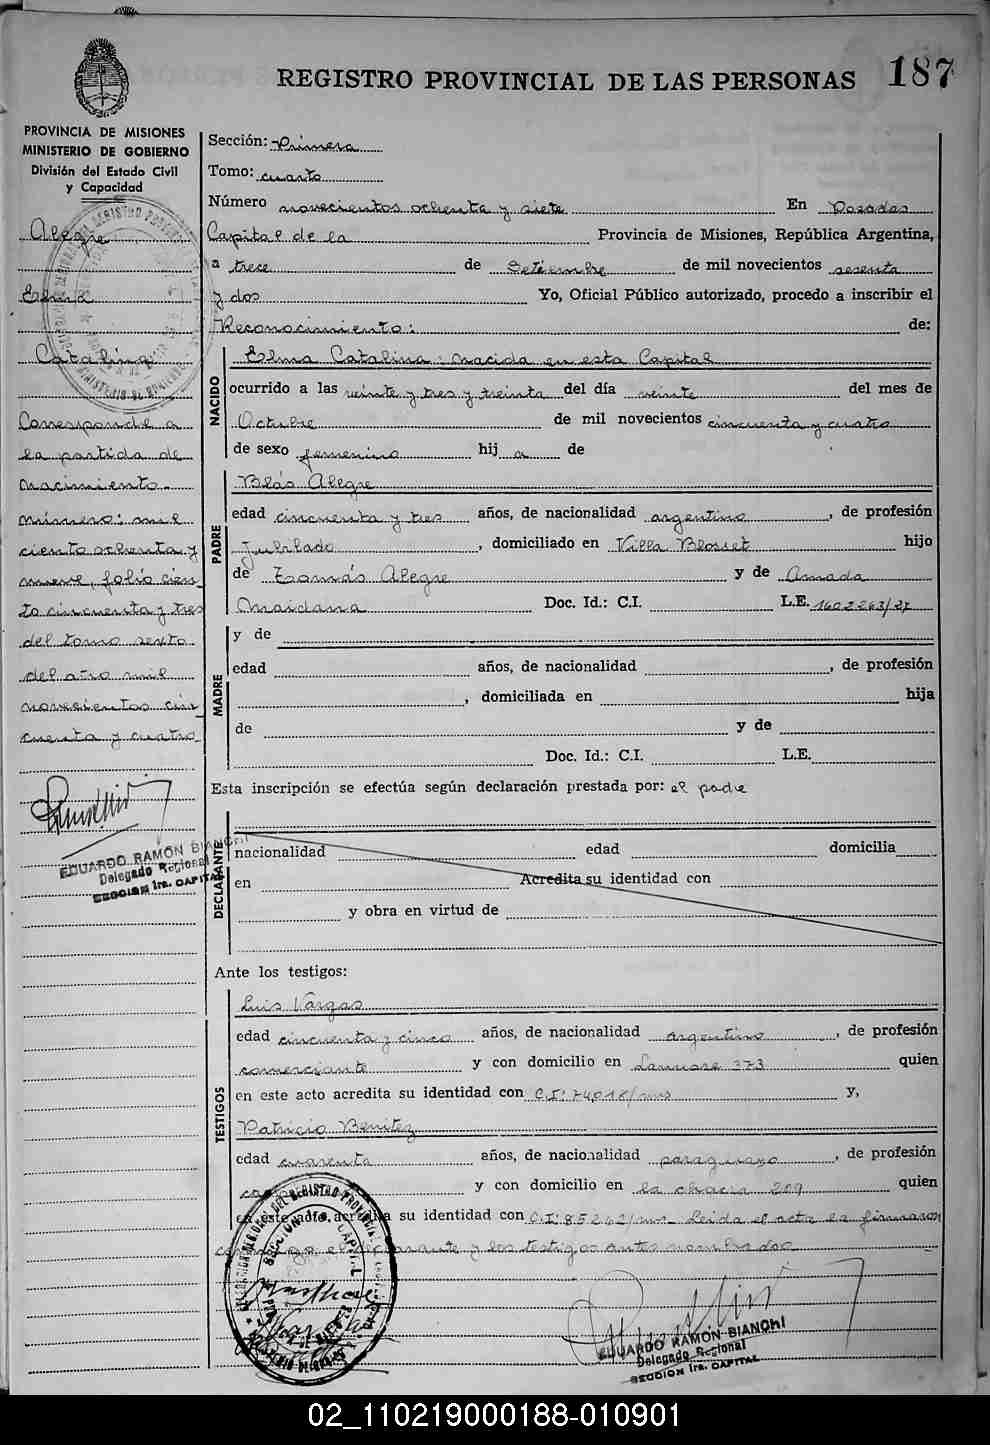 REGISTRO PROVINCIAL DE LAS PERSONAS 187
PROVINCIA DE MISIONES
MINISTERIO DE GOBIERNO
División del Estado Civil
y Capacidad
Alegre
Elma
Catalina
Corresponde a
la partida de
nacimiento.-
número: mil
ciento ochenta y
nueve, folio cien-
to cincuenta y tres
del tomo sexto
del año mil
novecientos cin-
cuenta y cuatro
EDUARDO RAMON BIANCHI
Delegado Regional
SECCION Ira. CAPITAL
Sección: Primera
Tomo: cuarto
Número novecientos ochenta y siete En Posadas
Capital de la Provincia de Misiones, República Argentina,
a trece de Setiembre de mil novecientos sesenta
y dos Yo, Oficial Público autorizado, procedo a inscribir el
Reconocimiento: de:
NACIDO
Elma Catalina: nacida en esta Capital
ocurrido a las veinte y tres y treinta del día veinte del mes de
Octubre de mil novecientos cincuenta y cuatro
de sexo femenino hij a de
PADRE
Blás Alegre
edad cincuenta y tres años, de nacionalidad argentino, de profesión
Jubilado, domiciliado en Villa Blosset hijo
de Tomás Alegre y de Amada
Maidana Doc. Id.: C.I. L.E. 1602263/37
MADRE
y de
edad años, de nacionalidad , de profesión
, domiciliada en hija
de y de
Doc. Id.: C.I. L.E.
Esta inscripción se efectúa según declaración prestada por: el padre
DECLARANTE
nacionalidad edad domicilia
en Acredita su identidad con
y obra en virtud de
Ante los testigos:
TESTIGOS
Luis Vargas
edad cincuenta y cinco años, de nacionalidad argentino, de profesión
comerciante y con domicilio en 373 quien
en este acto acredita su identidad con C.I: 74018/mns y,
Patricio Benitez
edad cuarenta años, de nacionalidad paraguayo, de profesión
y con domicilio en la chacra 209 quien
en este acto, acredita su identidad con C.I: 85262/mns- Leida el acta la firmaron
y los testigos antes nombrados
EDUARDO RAMON BIANCHI
Delegado Regional
SECCION Ira. CAPITAL
02_110219000188-010901